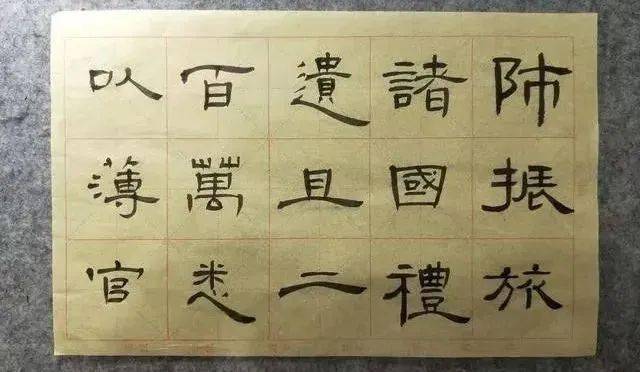 師振旅
諸國禮
遺且二
百萬悉
以薄官